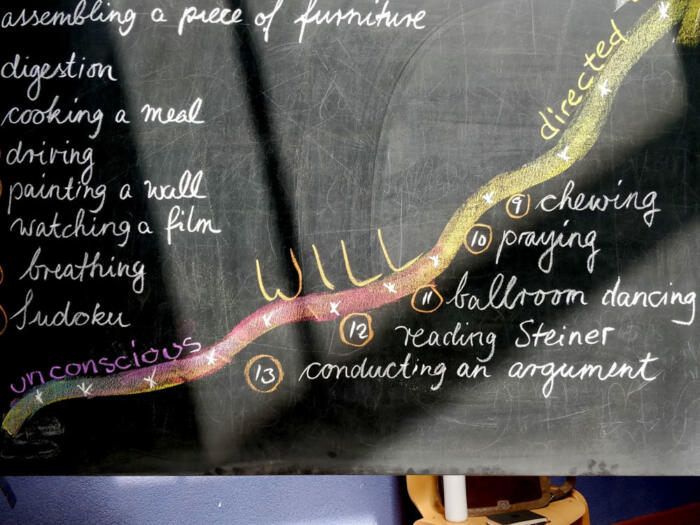 assembling a piece of furniture
digestion
cooking a meal
driving
painting a wall
watching a film
breathing
Sudoku
directed
WILL
unconscious
9 chewing
10 praying
11 ballroom dancing
12 reading Steiner
13 conducting an argument